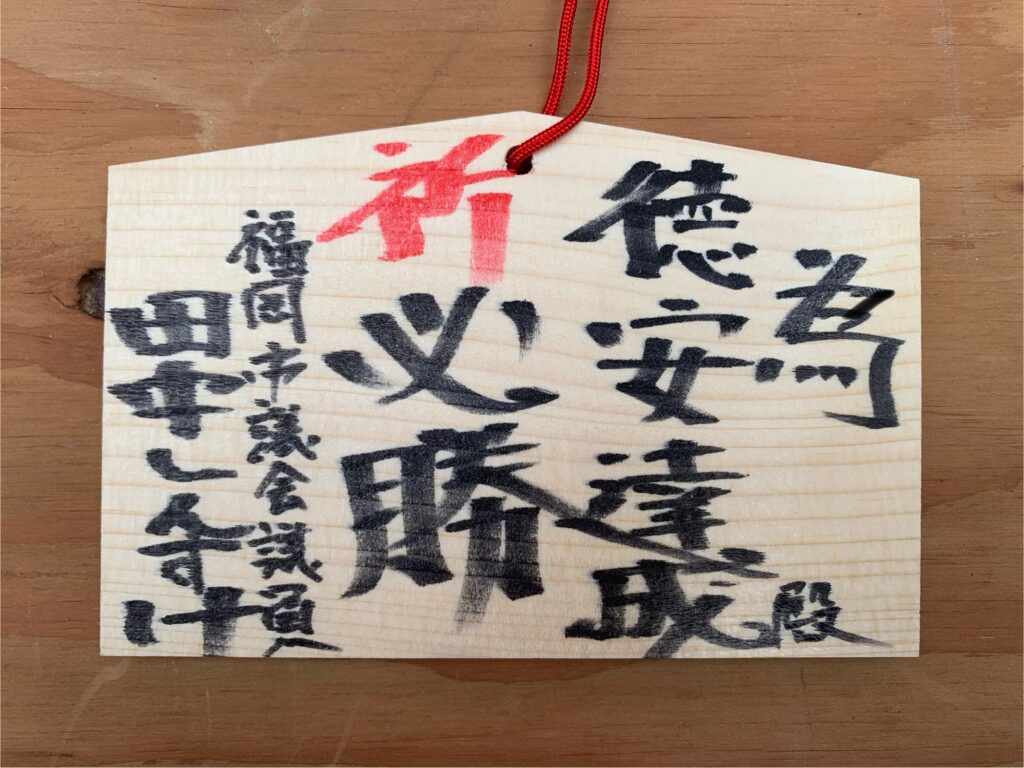 為
徳安達成殿
祈必勝
福岡市議会議員
田中しんすけ